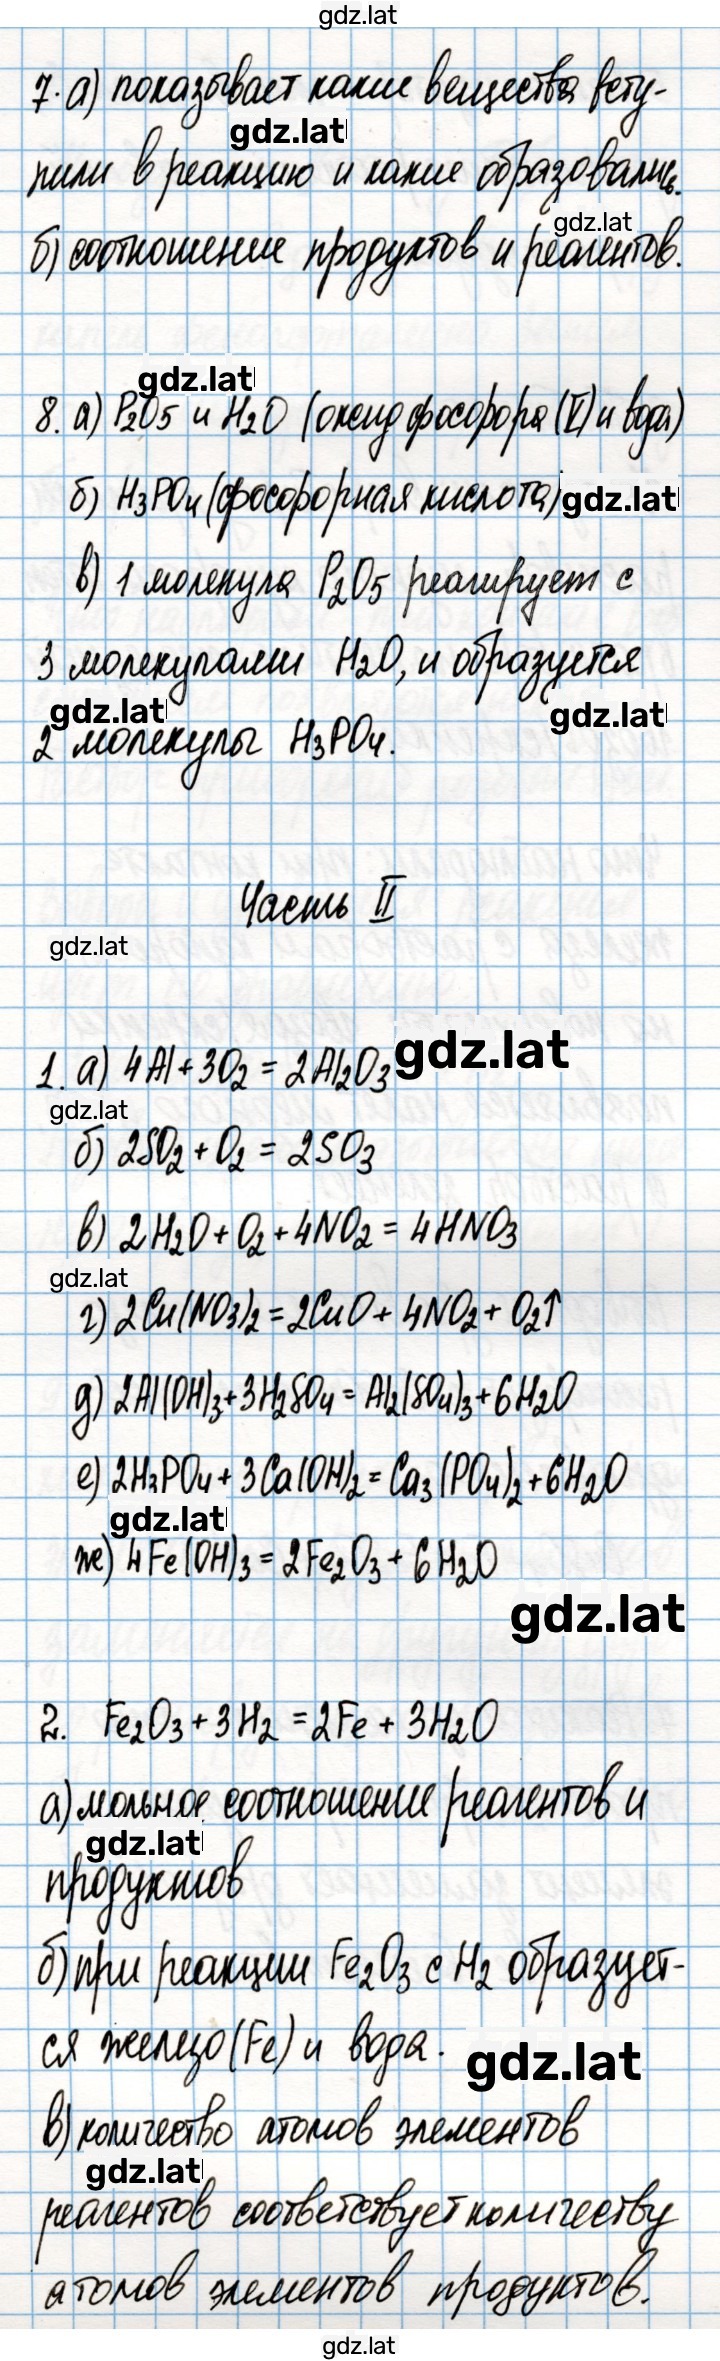 gdz.lat
7. а) показывает какие вещества всту-
gdz.lat
пили в реакцию и какие образовались.
gdz.lat
б) соотношение продуктов и реагентов.
gdz.lat
8. а) P₂O₅ и H₂O (оксид фосфора (V) и вода)
б) H₃PO₄ (фосфорная кислота) gdz.lat
в) 1 молекула P₂O₅ реагирует с
3 молекулами H₂O, и образуется
gdz.lat gdz.lat
2 молекулы H₃PO₄.
Часть II
gdz.lat
1. а) 4Al + 3O₂ = 2Al₂O₃ gdz.lat
gdz.lat
б) 2SO₂ + O₂ = 2SO₃
в) 2H₂O + O₂ + 4NO₂ = 4HNO₃
gdz.lat
г) 2Cu(NO₃)₂ = 2CuO + 4NO₂ + O₂↑
д) 2Al(OH)₃ + 3H₂SO₄ = Al₂(SO₄)₃ + 6H₂O
е) 2H₃PO₄ + 3Ca(OH)₂ = Ca₃(PO₄)₂ + 6H₂O
gdz.lat
же) 4Fe(OH)₃ = 2Fe₂O₃ + 6H₂O
gdz.lat
2. Fe₂O₃ + 3H₂ = 2Fe + 3H₂O
а) мольное соотношение реагентов и
gdz.lat
продуктов
б) при реакции Fe₂O₃ с H₂ образует-
ся железо (Fe) и вода. gdz.lat
в) количество атомов элементов
gdz.lat
реагентов соответствует количеству
атомов элементов продуктов.
gdz.lat